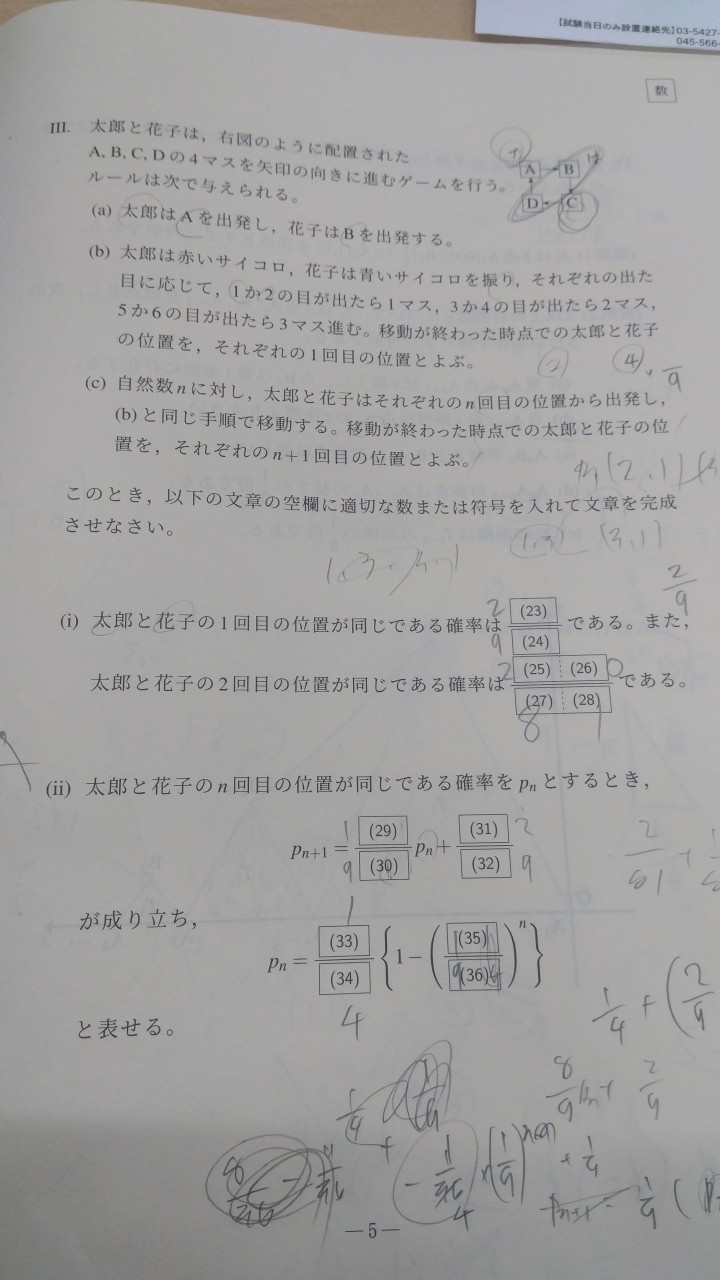 【試験当日のみ設置連絡先】03-5427-
045-566-
数
III. 太郎と花子は，右図のように配置された
A, B, C, D の4マスを矢印の向きに進むゲームを行う。
ルールは次で与えられる。
A B
D C
(a) 太郎はAを出発し，花子はBを出発する。
(b) 太郎は赤いサイコロ，花子は青いサイコロを振り，それぞれの出た
目に応じて，1か2の目が出たら1マス，3か4の目が出たら2マス，
5か6の目が出たら3マス進む。移動が終わった時点での太郎と花子
の位置を，それぞれの1回目の位置とよぶ。
② ④
9
(c) 自然数nに対し，太郎と花子はそれぞれのn回目の位置から出発し，
(b)と同じ手順で移動する。移動が終わった時点での太郎と花子の位
置を，それぞれのn+1回目の位置とよぶ。
(2, 1)
このとき，以下の文章の空欄に適切な数または符号を入れて文章を完成
させなさい。
(1, 3) (3, 1)
2/9
(i) 太郎と花子の1回目の位置が同じである確率は (23)/(24) である。また，
2/9
太郎と花子の2回目の位置が同じである確率は (25)(26)/(27)(28) である。
20/81
(ii) 太郎と花子のn回目の位置が同じである確率をpnとするとき，
pn+1 = (29)/(30) pn + (31)/(32)
1/9 2/9
2/81 +
が成り立ち，
pn = (33)/(34) {1 − ((35)/(36))^n}
1/4
と表せる。
1/4 + (2/9
8/9 2/9
+ 1/4
—5—